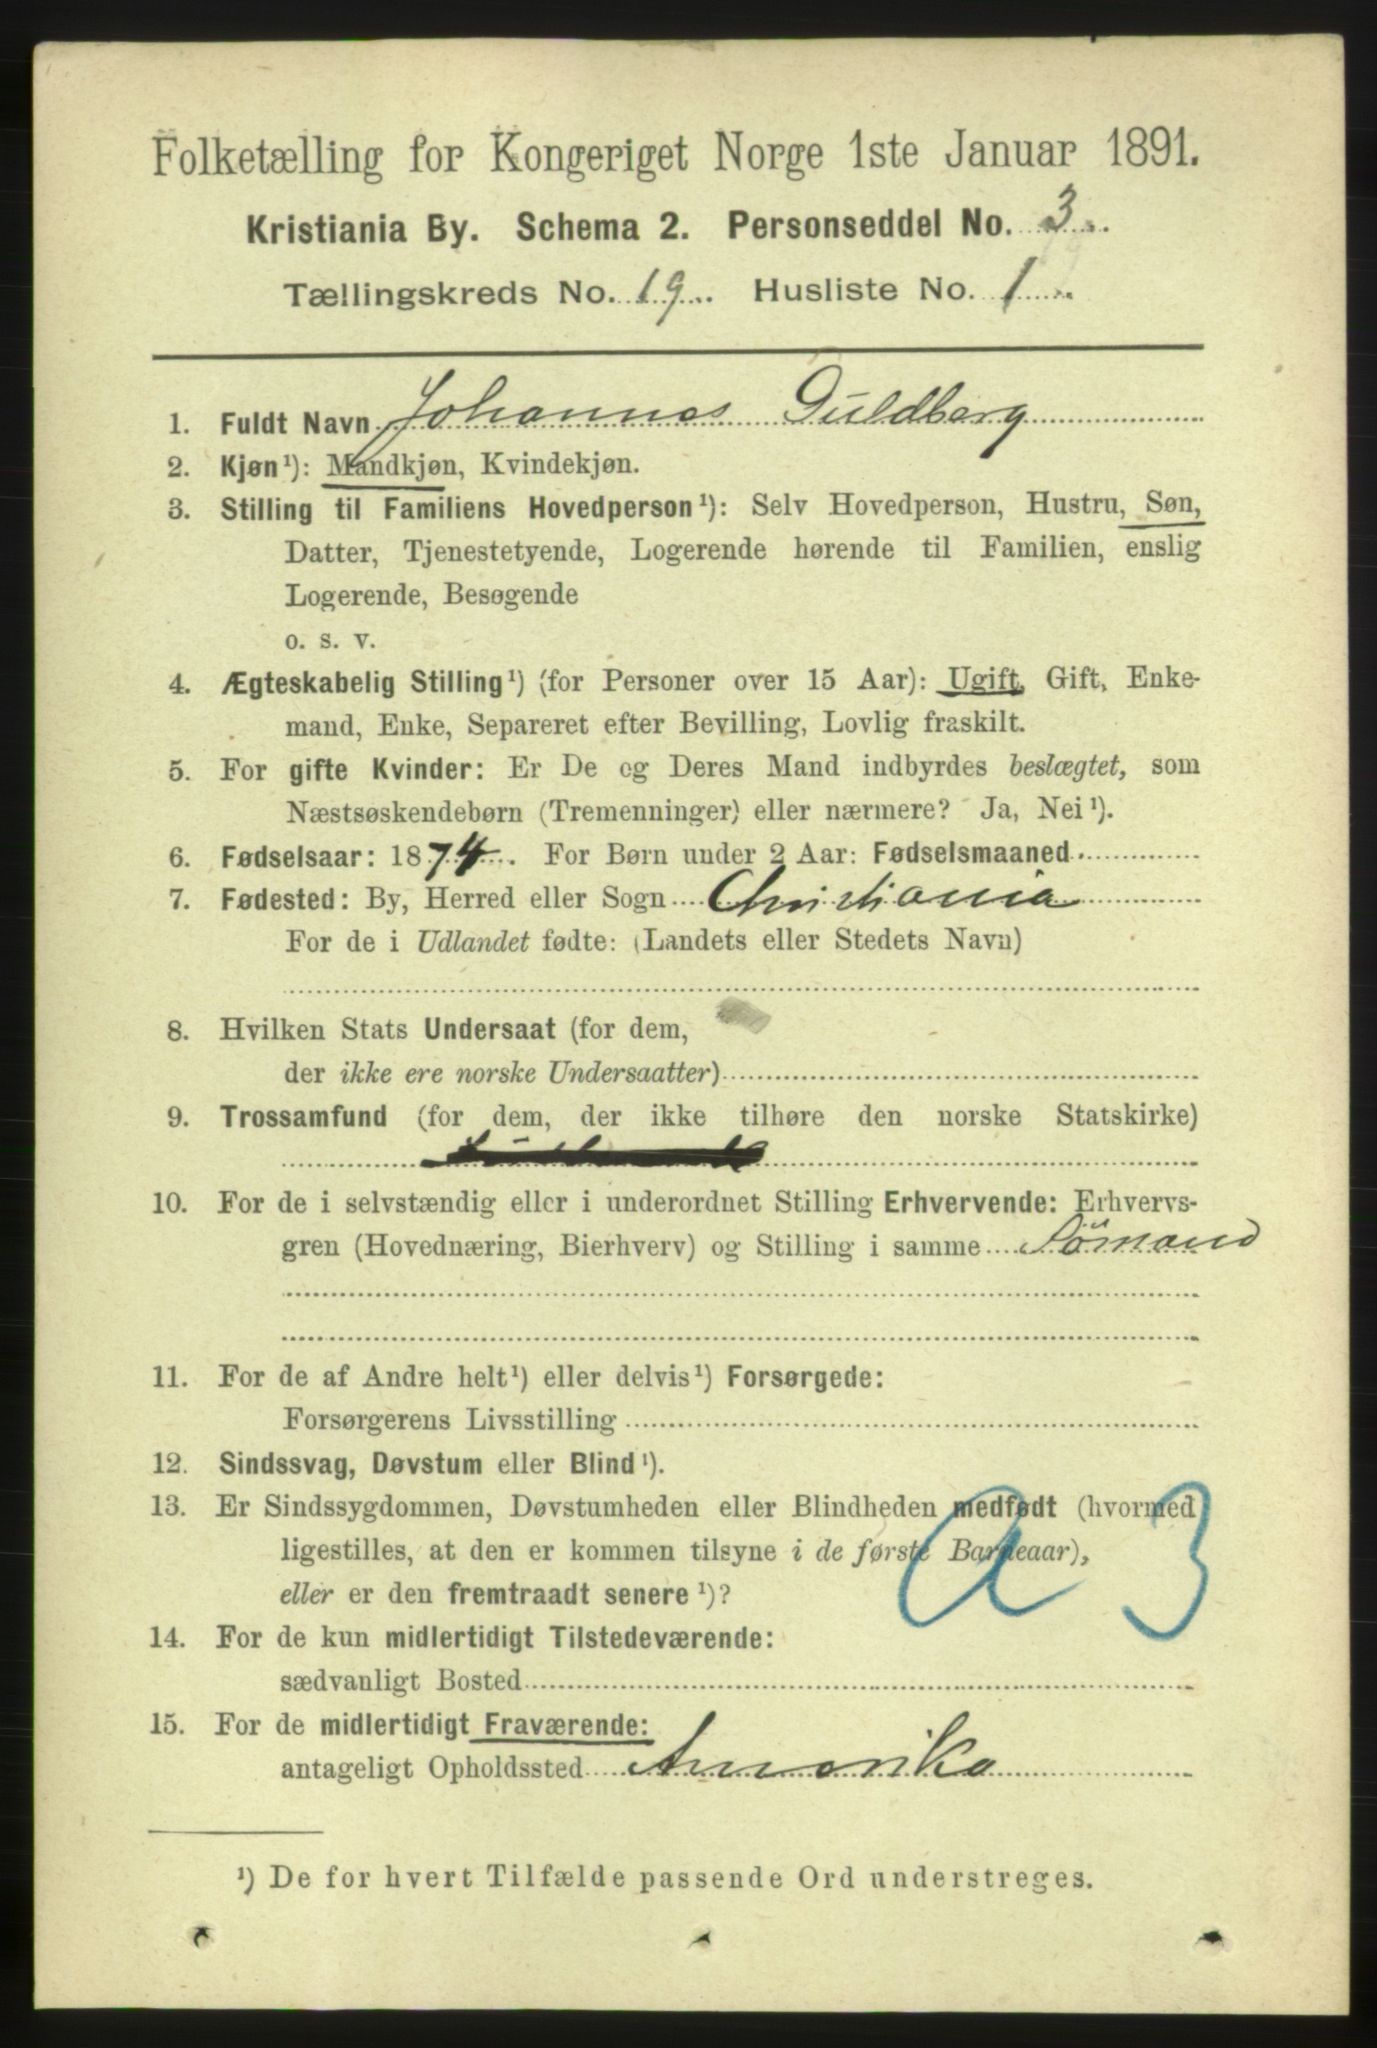 Folketælling for Kongeriget Norge 1ste Januar 1891.
Kristiania By. Schema 2. Personseddel No. 3
Tællingskreds No. 19. Husliste No. 1
1. Fuldt Navn Johannes Guldberg
2. Kjøn¹): Mandkjøn, Kvindekjøn.
3. Stilling til Familiens Hovedperson¹): Selv Hovedperson, Hustru, Søn,
Datter, Tjenestetyende, Logerende hørende til Familien, enslig
Logerende, Besøgende
o. s. v.
4. Ægteskabelig Stilling¹) (for Personer over 15 Aar): Ugift, Gift, Enke-
mand, Enke, Separeret efter Bevilling, Lovlig fraskilt.
5. For gifte Kvinder: Er De og Deres Mand indbyrdes beslægtet, som
Næstsøskendebørn (Tremenninger) eller nærmere? Ja, Nei¹).
6. Fødselsaar: 1874. For Børn under 2 Aar: Fødselsmaaned
7. Fødested: By, Herred eller Sogn Christiania
For de i Udlandet fødte: (Landets eller Stedets Navn)
8. Hvilken Stats Undersaat (for dem,
der ikke ere norske Undersaatter)
9. Trossamfund (for dem, der ikke tilhøre den norske Statskirke)
10. For de i selvstændig eller i underordnet Stilling Erhvervende: Erhvervs-
gren (Hovednæring, Bierhverv) og Stilling i samme Sömand
11. For de af Andre helt¹) eller delvis¹) Forsørgede:
Forsørgerens Livsstilling
12. Sindssvag, Døvstum eller Blind¹).
13. Er Sindssygdommen, Døvstumheden eller Blindheden medfødt (hvormed
ligestilles, at den er kommen tilsyne i de første Barneaar),
eller er den fremtraadt senere¹)?
a 3
14. For de kun midlertidigt Tilstedeværende:
sædvanligt Bosted
15. For de midlertidigt Fraværende:
antageligt Opholdssted Amerika
¹) De for hvert Tilfælde passende Ord understreges.